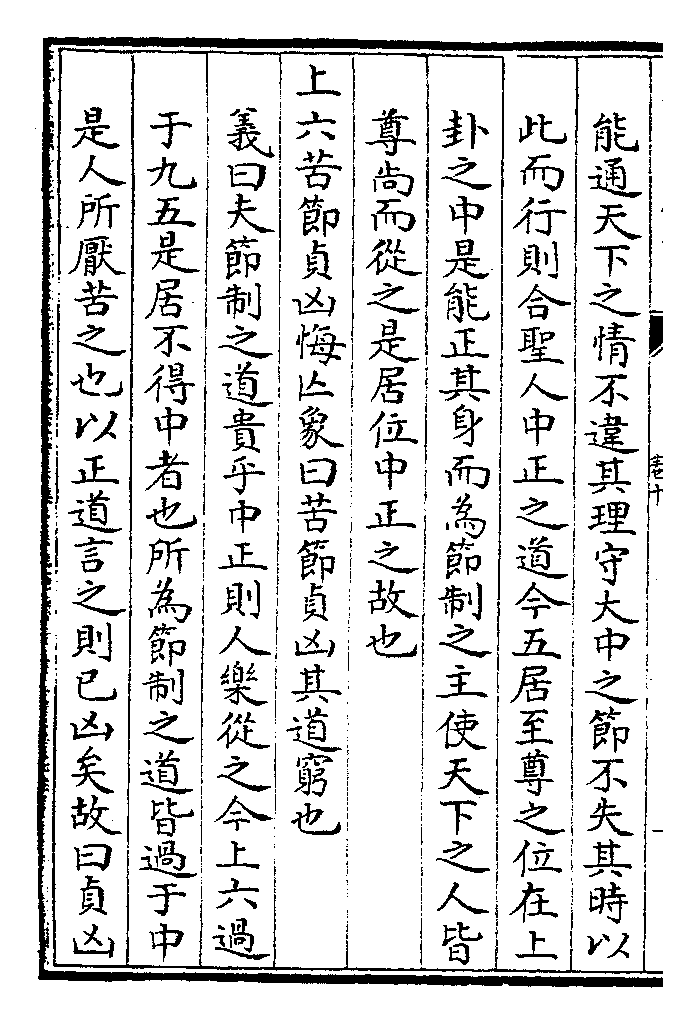 能通天下之情不違其理守大中之節不失其時以
此而行則合聖人中正之道今五居至尊之位在上
卦之中是能正其身而為節制之主使天下之人皆
尊尚而從之是居位中正之故也
上六苦節貞凶悔亡象曰苦節貞凶其道窮也
義曰夫節制之道貴乎中正則人樂從之今上六過
于九五是居不得中者也所為節制之道皆過于中
是人所厭苦之也以正道言之則已凶矣故曰貞凶